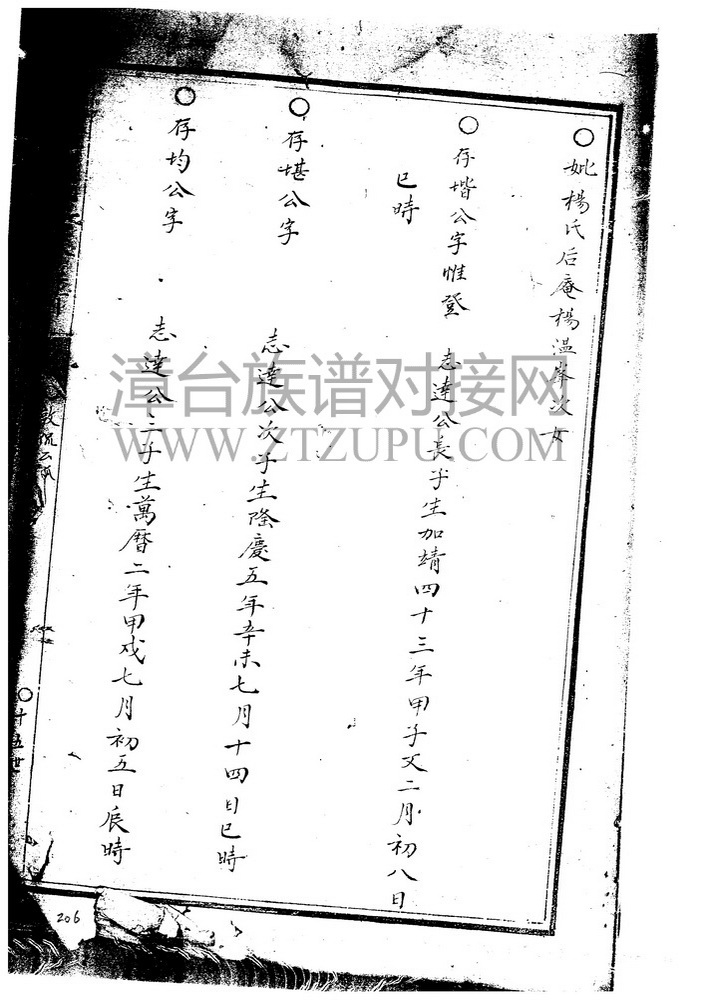 ○妣楊氏后庵楊温峯次女
○存堦公字惟登 志達公長子生加靖四十三年甲子又二月初八日
巳時
○存堪公字 志達公次子生隆慶五年辛未七月十四日巳時
○存均公字 志達公三子生萬曆二年甲戌七月初五日辰時
○十五世
206
漳台族谱对接网
WWW.ZTZUPU.COM